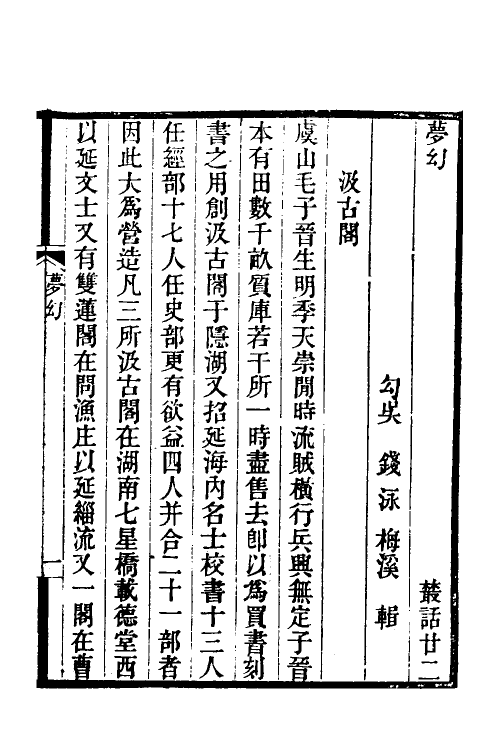 夢幻　叢話廿二
勾吳　錢泳　梅溪　輯
汲古閣
虞山毛子晉生明季天崇閒時流賊橫行兵興無定子晉
本有田數千畝質庫若干所一時盡售去卽以爲買書刻
書之用創汲古閣于隱湖又招延海內名士校書十三人
任經部十七人任史部更有欲益四人并合二十一部者
因此大爲營造凡三所汲古閣在湖南七星橋載德堂西
以延文士又有雙蓮閣在問漁庄以延緇流又一閣在曹
夢幻　一